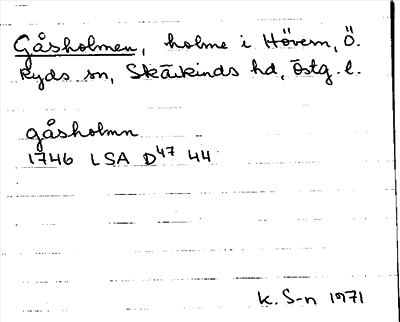 Gåsholmen, holme i Hövern, Ö.
Ryds sn, Skärkinds hd, Östg. l.
gåsholmn
1746 LSA D47 44
K. S-n 1971